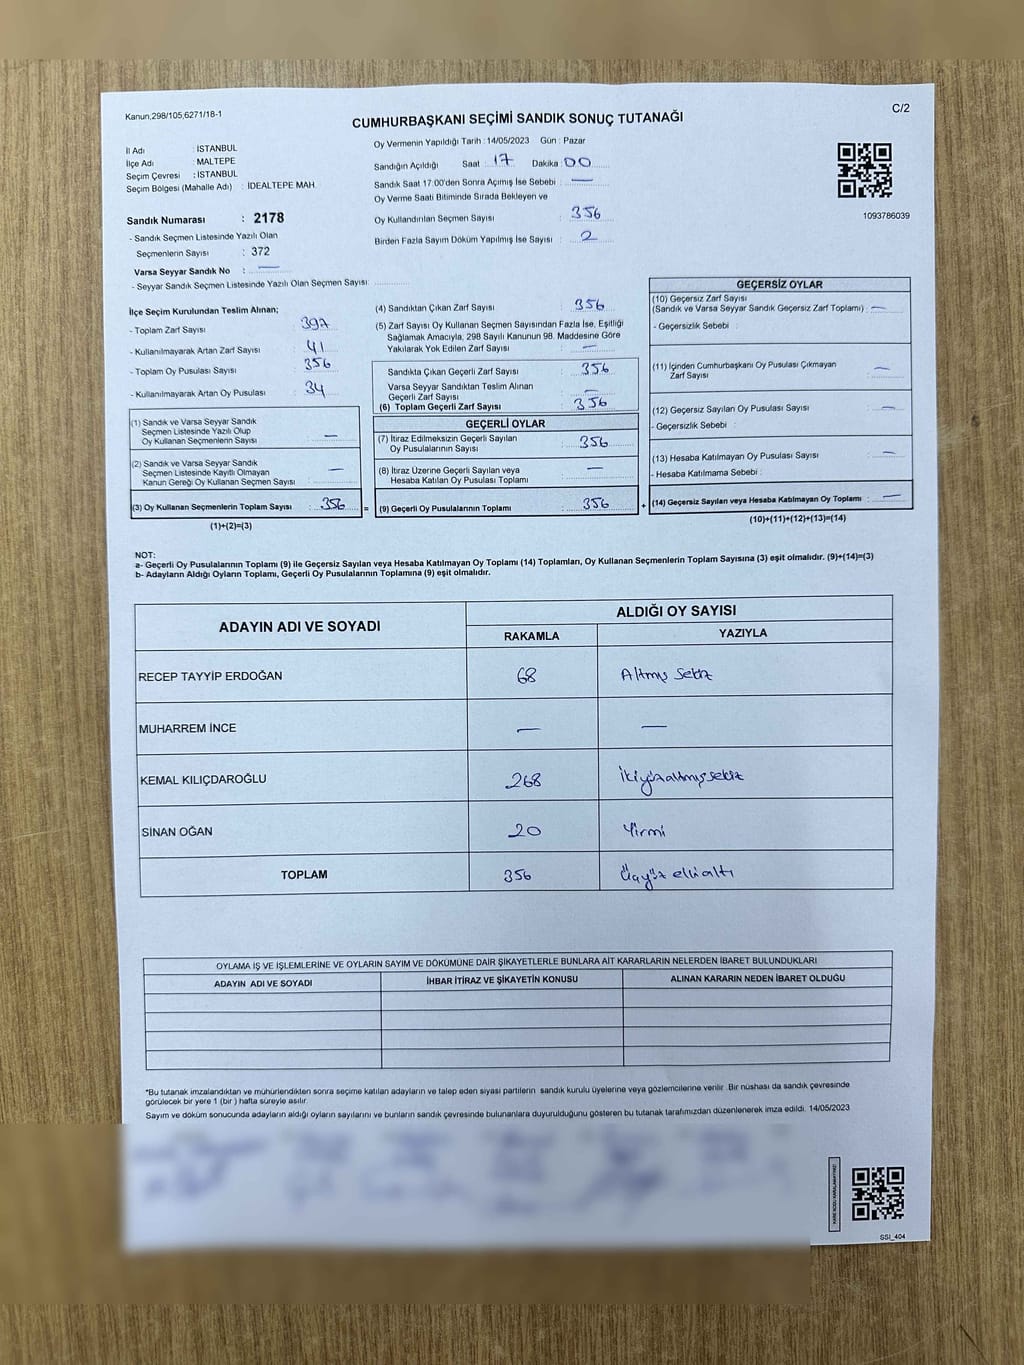 Kanun,298/105,6271/18-1
C/2
CUMHURBAŞKANI SEÇİMİ SANDIK SONUÇ TUTANAĞI
İl Adı : İSTANBUL
İlçe Adı : MALTEPE
Seçim Çevresi : İSTANBUL
Seçim Bölgesi (Mahalle Adı) : İDEALTEPE MAH.
Sandık Numarası : 2178
- Sandık Seçmen Listesinde Yazılı Olan
Seçmenlerin Sayısı : 372
Varsa Seyyar Sandık No : —
- Seyyar Sandık Seçmen Listesinde Yazılı Olan Seçmen Sayısı :
Oy Vermenin Yapıldığı Tarih : 14/05/2023 Gün : Pazar
Sandığın Açıldığı Saat 17 Dakika 00
Sandık Saat 17:00'den Sonra Açımış İse Sebebi : —
Oy Verme Saati Bitiminde Sırada Bekleyen ve
Oy Kullandırılan Seçmen Sayısı : 356
Birden Fazla Sayım Döküm Yapılmış İse Sayısı : 2
1093786039
İlçe Seçim Kurulundan Teslim Alınan;
- Toplam Zarf Sayısı : 397
- Kullanılmayarak Artan Zarf Sayısı : 41
- Toplam Oy Pusulası Sayısı : 356
- Kullanılmayarak Artan Oy Pusulası : 34
(1) Sandık ve Varsa Seyyar Sandık
Seçmen Listesinde Yazılı Olup
Oy Kullanan Seçmenlerin Sayısı : —
(2) Sandık ve Varsa Seyyar Sandık
Seçmen Listesinde Kayıtlı Olmayan
Kanun Gereği Oy Kullanan Seçmen Sayısı : —
(3) Oy Kullanan Seçmenlerin Toplam Sayısı : 356 =
(1)+(2)=(3)
(4) Sandıktan Çıkan Zarf Sayısı : 356
(5) Zarf Sayısı Oy Kullanan Seçmen Sayısından Fazla İse, Eşitliği
Sağlamak Amacıyla, 298 Sayılı Kanunun 98. Maddesine Göre
Yakılarak Yok Edilen Zarf Sayısı : —
Sandıkta Çıkan Geçerli Zarf Sayısı : 356
Varsa Seyyar Sandıktan Teslim Alınan
Geçerli Zarf Sayısı : —
(6) Toplam Geçerli Zarf Sayısı : 356
GEÇERLİ OYLAR
(7) İtiraz Edilmeksizin Geçerli Sayılan
Oy Pusulalarının Sayısı : 356
(8) İtiraz Üzerine Geçerli Sayılan veya
Hesaba Katılan Oy Pusulası Toplamı : —
(9) Geçerli Oy Pusulalarının Toplamı : 356 +
GEÇERSİZ OYLAR
(10) Geçersiz Zarf Sayısı
(Sandık ve Varsa Seyyar Sandık Geçersiz Zarf Toplamı) : —
- Geçersizlik Sebebi :
(11) İçinden Cumhurbaşkanı Oy Pusulası Çıkmayan
Zarf Sayısı : —
(12) Geçersiz Sayılan Oy Pusulası Sayısı : —
- Geçersizlik Sebebi :
(13) Hesaba Katılmayan Oy Pusulası Sayısı : —
- Hesaba Katılmama Sebebi :
(14) Geçersiz Sayılan veya Hesaba Katılmayan Oy Toplamı : —
(10)+(11)+(12)+(13)=(14)
NOT:
a- Geçerli Oy Pusulalarının Toplamı (9) ile Geçersiz Sayılan veya Hesaba Katılmayan Oy Toplamı (14) Toplamları, Oy Kullanan Seçmenlerin Toplam Sayısına (3) eşit olmalıdır. (9)+(14)=(3)
b- Adayların Aldığı Oyların Toplamı, Geçerli Oy Pusulalarının Toplamına (9) eşit olmalıdır.
ADAYIN ADI VE SOYADI
ALDIĞI OY SAYISI
RAKAMLA YAZIYLA
RECEP TAYYİP ERDOĞAN 68 Altmış Sekiz
MUHARREM İNCE — —
KEMAL KILIÇDAROĞLU 268 İkiyüzaltmışsekiz
SİNAN OĞAN 20 Yirmi
TOPLAM 356 Üçyüz elli altı
OYLAMA İŞ VE İŞLEMLERİNE VE OYLARIN SAYIM VE DÖKÜMÜNE DAİR ŞİKAYETLERLE BUNLARA AİT KARARLARIN NELERDEN İBARET BULUNDUKLARI
ADAYIN ADI VE SOYADI İHBAR İTİRAZ VE ŞİKAYETİN KONUSU ALINAN KARARIN NEDEN İBARET OLDUĞU
*Bu tutanak imzalandıktan ve mühürlendikten sonra seçime katılan adayların ve talep eden siyasi partilerin sandık kurulu üyelerine veya gözlemcilerine verilir. Bir nüshası da sandık çevresinde
görülecek bir yere 1 (bir ) hafta süreyle asılır.
Sayım ve döküm sonucunda adayların aldığı oyların sayılarını ve bunların sandık çevresinde bulunanlara duyurulduğunu gösteren bu tutanak tarafımızdan düzenlenerek imza edildi. 14/05/2023
SSI_404